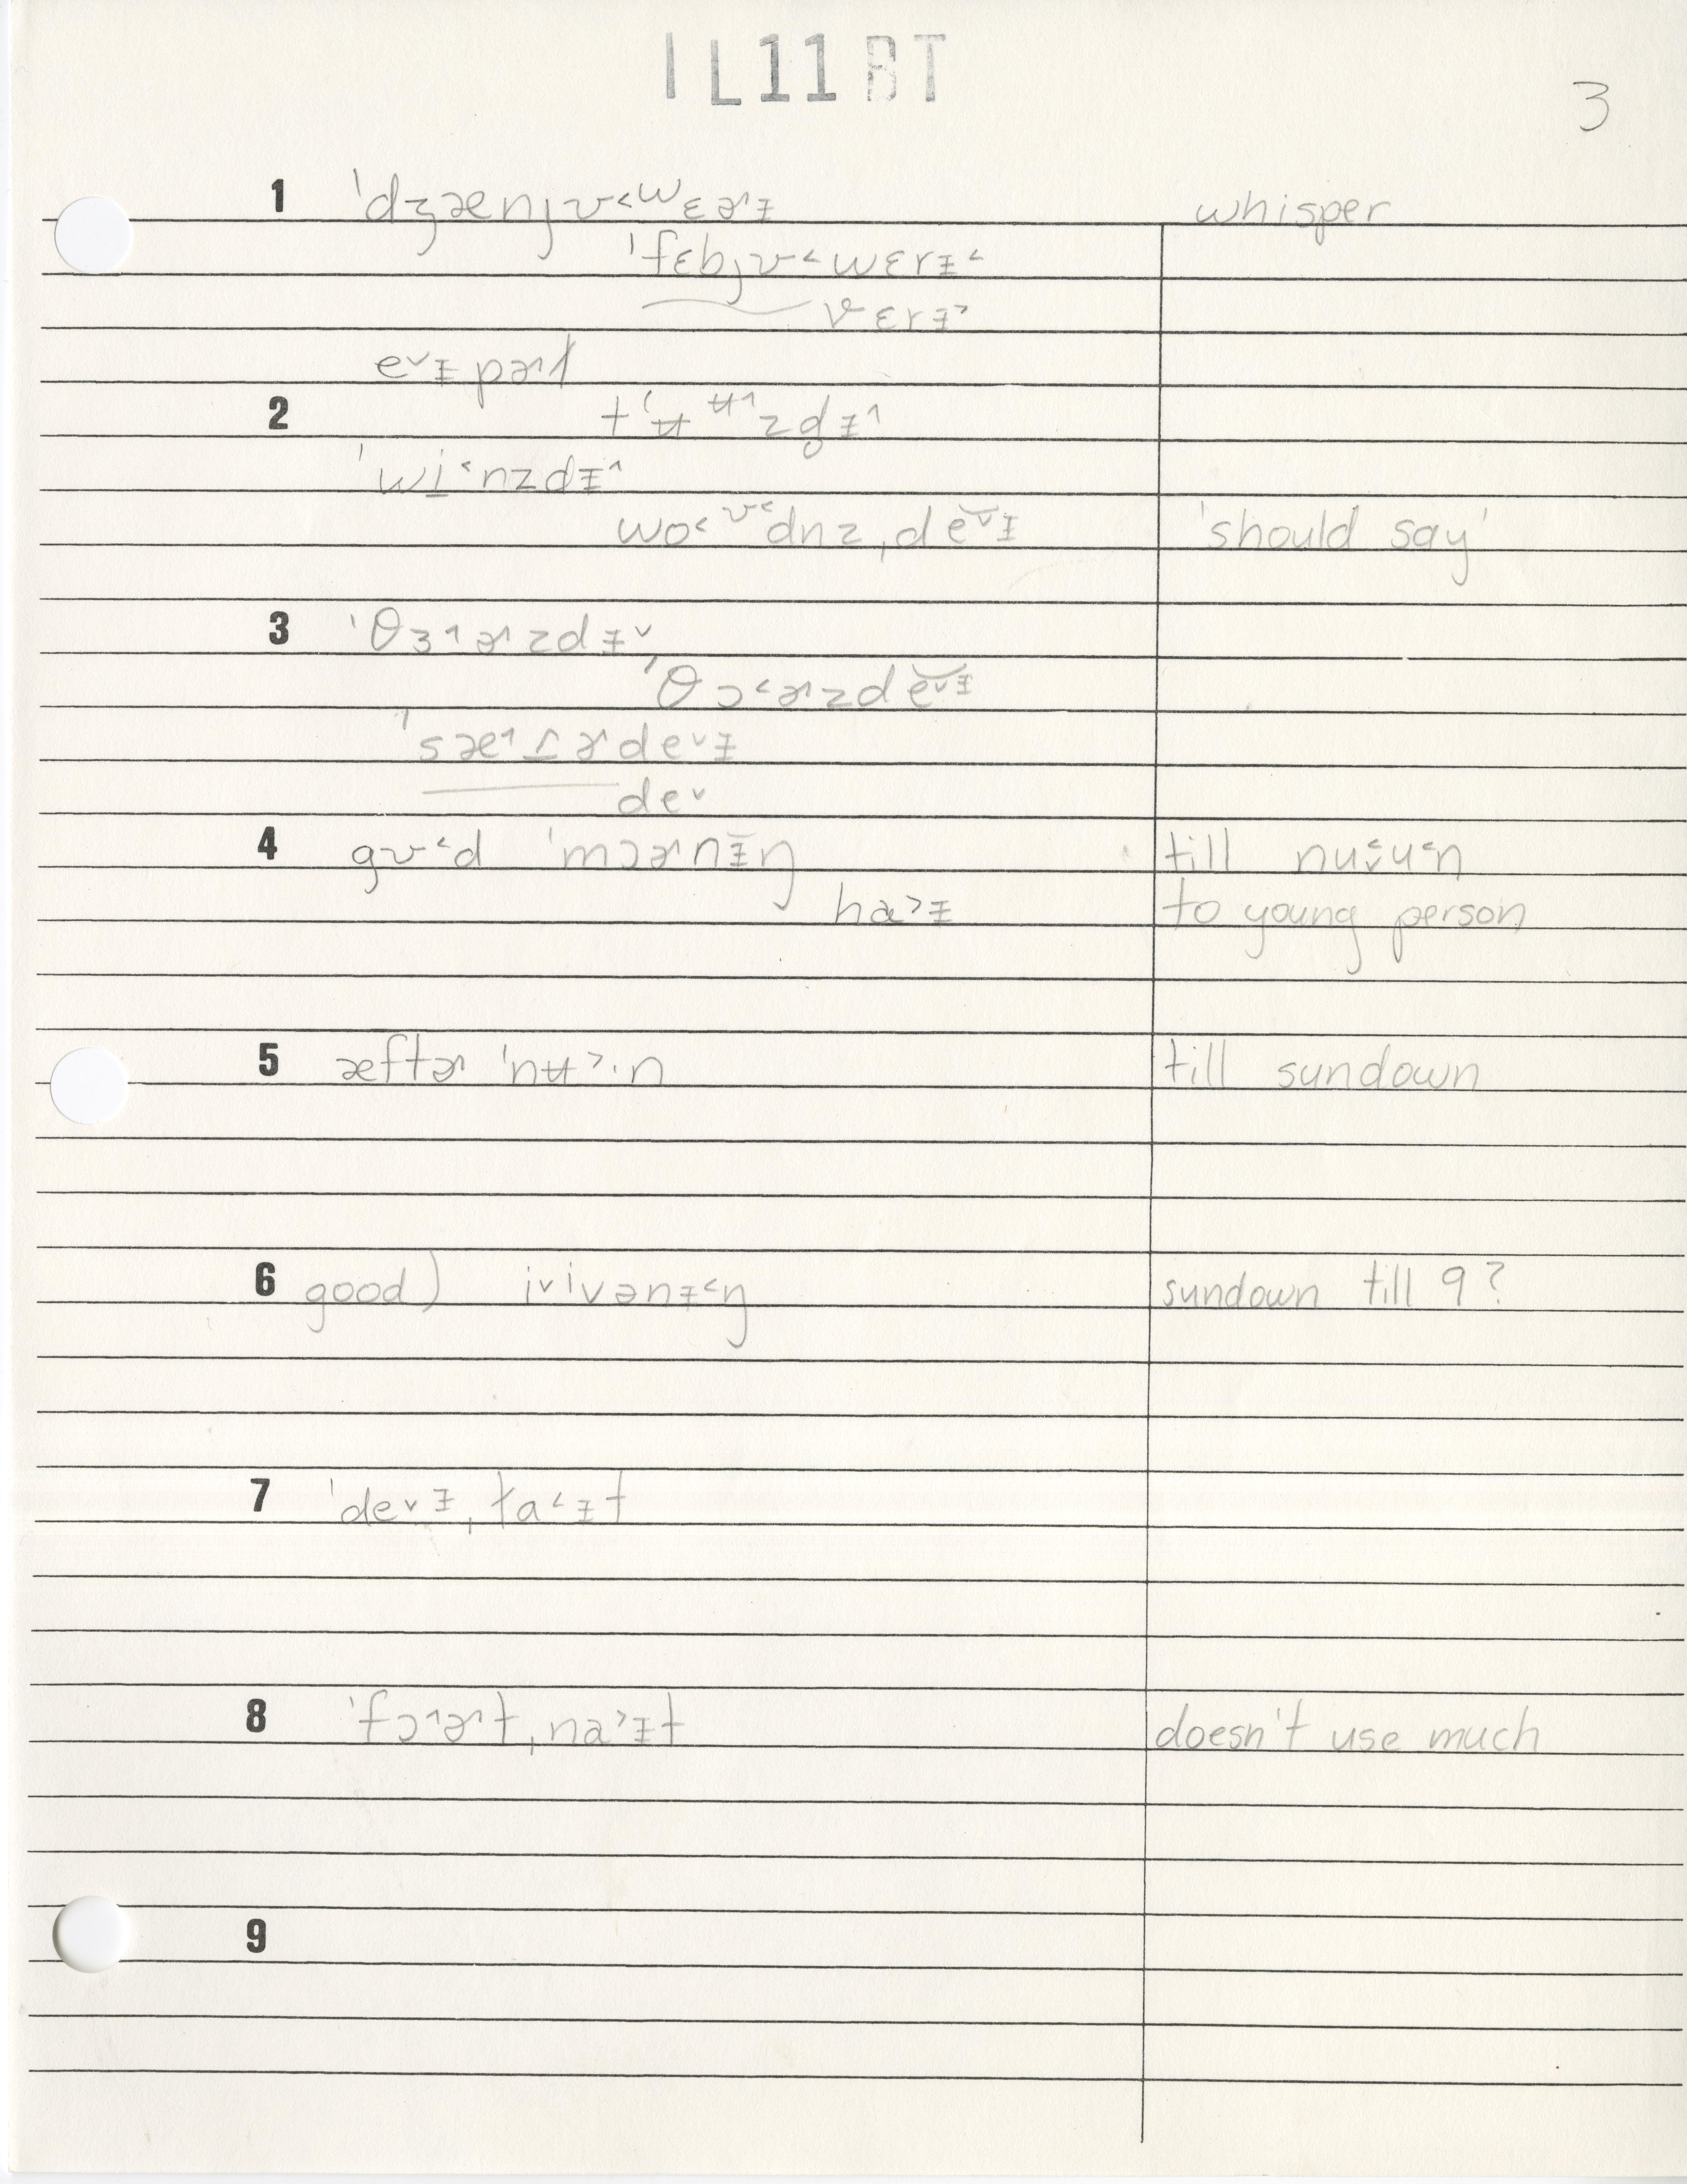 IL11BT
3
1 ˈdʒænjʊ˂wɛɚɨ whisper
ˈfɛbjʊ˂wɛrɨ˂
vɛrɨ˃
e˅ɨprɪl
2 tˈʉ ʉ˄zdɨ˄
ˈwi˂nzdɨ˄
wo˂ʊ˂dnzˌde˅ɨ 'should say'
3 ˈθɜ˄ɚzdɨ˅
ˈθɔ˂ɚzde˅ɨ
ˈsæ˄ɾɚde˅ɨ
de˅
4 gʊ˂d ˈmɔɚnɨ̆ŋ till nu˂u˂n
ha˃ɨ to young person
5 æftɚ ˈnʉ˃·n till sundown
6 good) i˅ivənɨ˂ŋ sundown till 9?
7 ˈde˅ɨˌla˂ɨt
8 ˈfɔ˄ɚtˌna˃ɨt doesn't use much
9